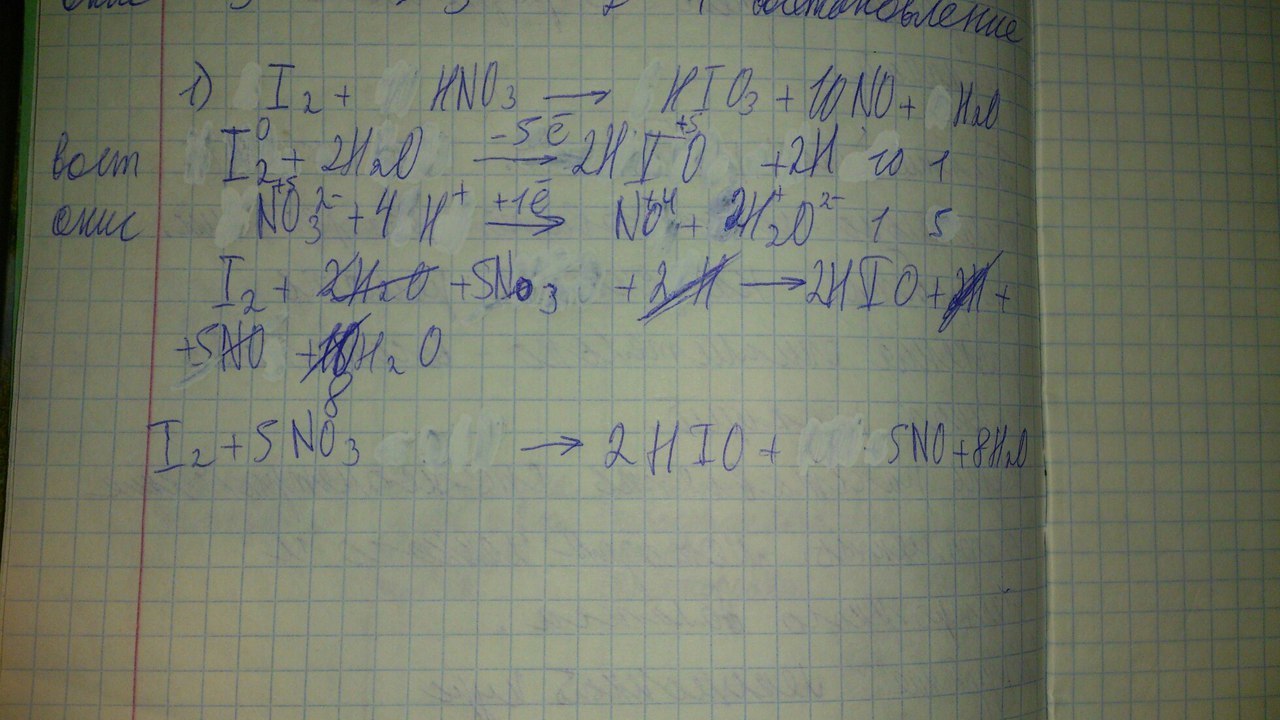 восстановление
1) I2 + HNO3 → HIO3 + 10NO + H2O
восст I2⁰ + 2H2O −5ē→ 2HI⁺⁵O + 2H 10 1
окис N⁺⁵O3²⁻ + 4H⁺ +1ē→ NO⁺⁴ + 2H2⁺O²⁻ 1 5
I2 + 2H2O + 5NO3 + 2H → 2HIO + 2H +
+5NO + 10H2O
8
I2 + 5NO3 → 2HIO + 5NO + 8H2O